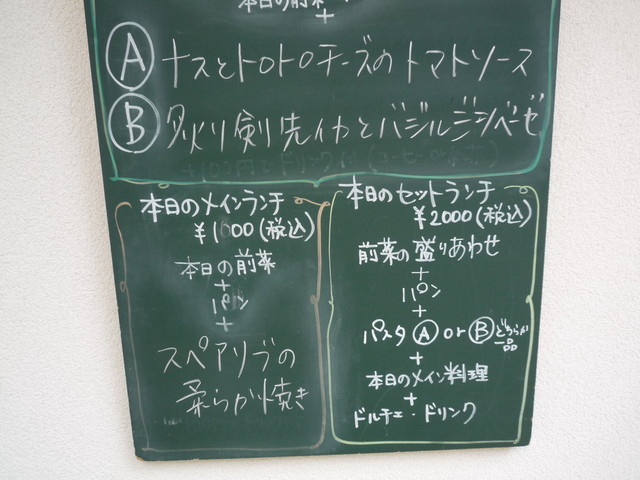 本日の前菜
+
Ⓐ ナスとトロトロチーズのトマトソース
Ⓑ 炙り剣先イカとバジルジェノベーゼ
本日のメインランチ
¥1600(税込)
本日の前菜
+
パン
+
スペアリブの
柔らか焼き
本日のセットランチ
¥2000(税込)
前菜の盛りあわせ
+
パン
+
パスタ Ⓐ or Ⓑ どちらか一品
+
本日のメイン料理
+
ドルチェ・ドリンク